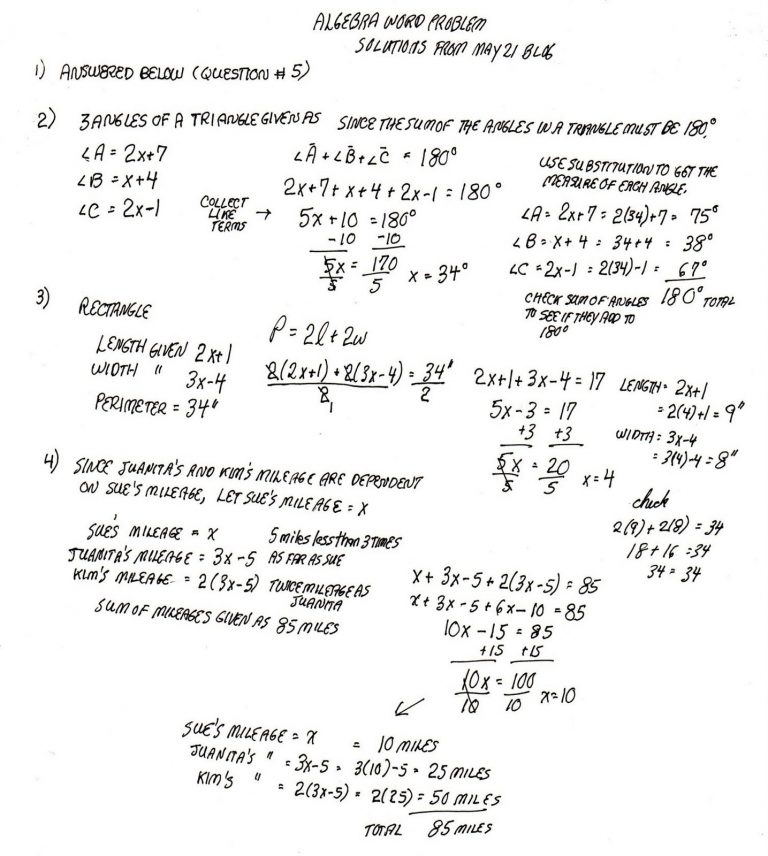 ALGEBRA WORD PROBLEM
SOLUTIONS FROM MAY 21 BLOG
1) ANSWERED BELOW (QUESTION # 5)
2) 3 ANGLES OF A TRIANGLE GIVEN AS SINCE THE SUM OF THE ANGLES IN A TRIANGLE MUST BE 180°.
∠A = 2x+7
∠B = x+4
∠C = 2x-1
∠A + ∠B + ∠C = 180°
2x+7+x+4+2x-1 = 180°
COLLECT
LIKE
TERMS →
5x+10 = 180°
-10 -10
5x = 170
5 5
x = 34°
USE SUBSTITUTION TO GET THE
MEASURE OF EACH ANGLE.
∠A = 2x+7 = 2(34)+7 = 75°
∠B = x+4 = 34+4 = 38°
∠C = 2x-1 = 2(34)-1 = 67°
CHECK SUM OF ANGLES 180° TOTAL
TO SEE IF THEY ADD TO
180°
3) RECTANGLE
LENGTH GIVEN 2x+1
WIDTH " 3x-4
PERIMETER = 34"
P = 2l + 2w
2(2x+1) + 2(3x-4) = 34"
2 1 2
2x+1+3x-4 = 17
5x-3 = 17
+3 +3
5x = 20
5 5
x = 4
LENGTH = 2x+1
= 2(4)+1 = 9"
WIDTH = 3x-4
= 3(4)-4 = 8"
check
2(9)+2(8) = 34
18+16 = 34
34 = 34
4) SINCE JUANITA'S AND KIM'S MILEAGE ARE DEPENDENT
ON SUE'S MILEAGE, LET SUE'S MILEAGE = X
SUE'S MILEAGE = X 5 miles less than 3 TIMES
JUANITA'S MILEAGE = 3x-5 AS FAR AS SUE
KIM'S MILEAGE = 2(3x-5) TWICE MILEAGE AS
JUANITA
SUM OF MILEAGES GIVEN AS 85 MILES
x+3x-5+2(3x-5) = 85
x+3x-5+6x-10 = 85
10x-15 = 85
+15 +15
10x = 100
10 10
x=10
SUE'S MILEAGE = X = 10 MILES
JUANITA'S " = 3x-5 = 3(10)-5 = 25 MILES
KIM'S " = 2(3x-5) = 2(25) = 50 MILES
TOTAL 85 MILES